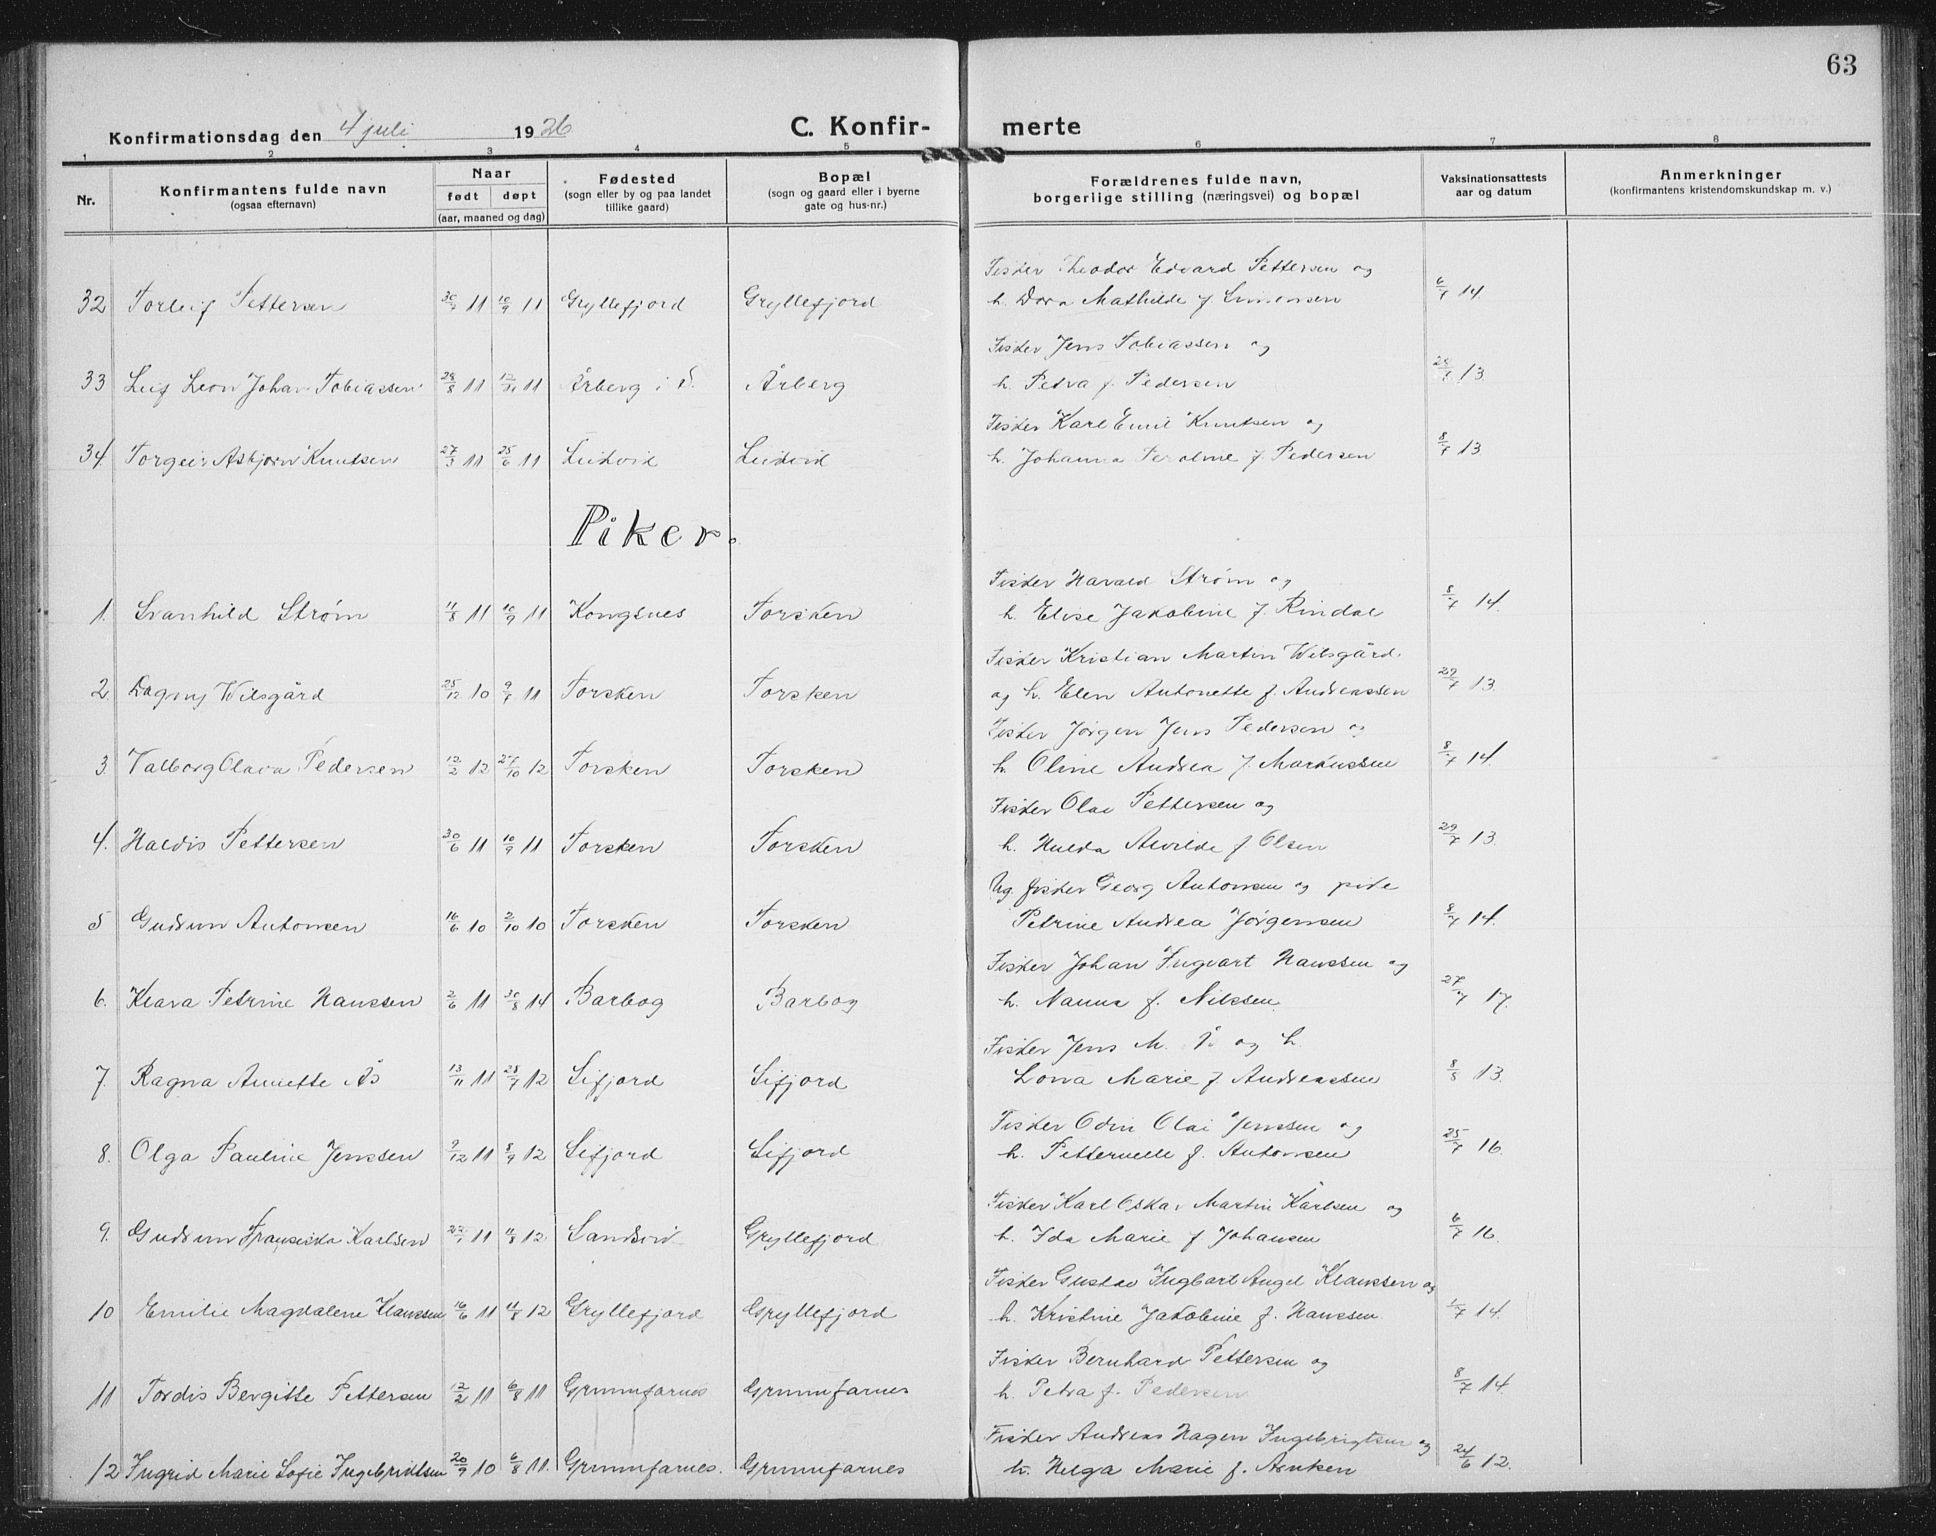 63
Konfirmationsdag den 4 juli 1926 C. Konfir- merte
1 2 3 4 5 6 7 8
Nr.
Konfirmantens fulde navn
(ogsaa efternavn)
Naar
født døpt
(aar, maaned og dag)
Fødested
(sogn eller by og paa landet
tillike gaard)
Bopæl
(sogn og gaard eller i byerne
gate og hus-nr.)
Forældrenes fulde navn,
borgerlige stilling (næringsvei) og bopæl
Vaksinationsattests
aar og datum
Anmerkninger
(konfirmantens kristendomskundskap m. v.)
Fisker Theodor Edvard Pettersen og
32 Torleif Pettersen 11 10/9 11 Gryllefjord Gryllefjord h. Dora Mathilde f Simonsen 6/7 14.
Fisker Jens Tobiassen og
33 Leif Leon Johan Tobiassen 28/8 11 11 Årberg i Årberg h. Petra f. Pedersen 13.
Fisker Karl Emil Knutsen og
34 Torgeir Asbjørn Knutsen 27/3 11 25/6 11 Ludvid Ludvid h. Johanna f. Pedersen 8/7 13
Piker.
Fisker Harald Strøm og
1. Svanhild Strøm 11/8 11 10/9 11 Kongsnes Torsken h. Elise Jakobine f. Rindal 8/7 14.
Fisker Kristian Martin Wilsgård
2. Dagny Wilsgård 25/12 10 9/7 11 Torsken Torsken og h. Elen Antonette f. Andreassen 29/7 13.
Fisker Jørgen Jens Pedersen og
3. Valborg Olava Pedersen 12/2 12 27/10 12 Torsken Torsken h. Oline Andrea f. Markussen 8/7 14.
Fisker Olai Pettersen og
4. Haldis Pettersen 30/6 11 10/9 11 Torsken Torsken h. Hulda Alvilde f Olsen 29/7 13.
Ug. fisker Georg Antonsen og pike
5 Gudrun Antonsen 16/6 10 2/10 10 Torsken Torsken Petrine Andrea Jørgensen 8/7 14.
Fisker Johan Ingvart Hanssen og
6. Klara Petrine Hanssen 2/6 11 30/8 14 Barbog Barbog h. Nanna f. Nilssen 27/7 17.
Fisker Jens M. Ås og h.
7. Ragna Annette Ås 13/11 11 28/7 12 Sifjord Sifjord Lona Marie f Andreassen 8/8 13.
Fisker Odin Olai Jenssen og
8. Olga Pauline Jenssen 9/12 11 8/9 12 Sifjord Sifjord h. Petternelle f. Antonsen 25/7 16.
Fisker Karl Oskar Martin Karlsen og
9. Gudrun Fransiska Karlsen 11 11/8 12 Sandvik Gryllefjord h. Ida Marie f Johansen 6/7 16.
Fisker Gustav Ingbart Angel Klaussen og
10 Emilie Magdalene Klaussen 16/6 11 11/8 12 Gryllefjord Gryllefjord h. Kristine Jakobine f. Hanssen 14.
Fisker Bernhard Pettersen og
11 Tordis Bergitte Pettersen 12/2 11 6/8 11 Grunnfarnes Grunnfarnes h. Petra f. Pedersen 8/7 14.
Fisker Andreas Hagen Ingebrigtsen og
12 Ingrid Marie Sofie Ingebrigtsen 20/9 10 6/8 11. Grunnfarnes. Grunnfarnes h. Helga Marie f. Arntsen 24/6 12.